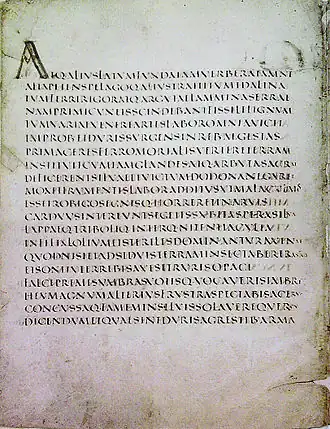 ATQ·ALIVSLATVMFVNDAIAMVERBERATAMNE
ALTAPETENSPELAGOQ·ALIVSTRAHITVMIDALINA
TVMFERRIRIGORATQ·ARGVTAELAMMINASERRAE
NAMPRIMICVNEISSCINDEBANTFISSILELIGNVM
TVMVARIAEVENEREARTESLABOROMNIAVICIT
IMPROBETDVRISVRGENSINREBVSEGESTAS
PRIMACERESFERROMORTALISVERTERETERRAM
INSTITVITCVMIAMGLANDESATQ·ARBVTASACRAE
DEFICERENTSILVAEETVICTVMDODONANEGARET
MOXETFRVMENTISLABORADDITVSVTMALACVLMOS
ESSETROBIGOSEGNISQ·HORRERETINARVIS
CARDVVSINTEREVNTSEGETESSVBITASPERASILVA
LAPPAEQ·TRIBOLIQ·INTERQ·NITENTIACVLTA
INFELIXLOLIVMETSTERILESDOMINANTVRAVENAE
QVODNISIETADSIDVISTERRAMINSECTABERERASTRIS
ETSONITVTERREBISAVESETRVRISOPACI
FALCEPREMESVMBRASVOTISQ·VOCAVERISIMBRE
HEVMAGNVMALTERIVSFRVSTRASPECTABISACERVOM
CONCVSSAQ·FAMEMINSILVISSOLAVEREQVERCV
DICENDVMETQVAESINTDVRISAGRESTIBARMA